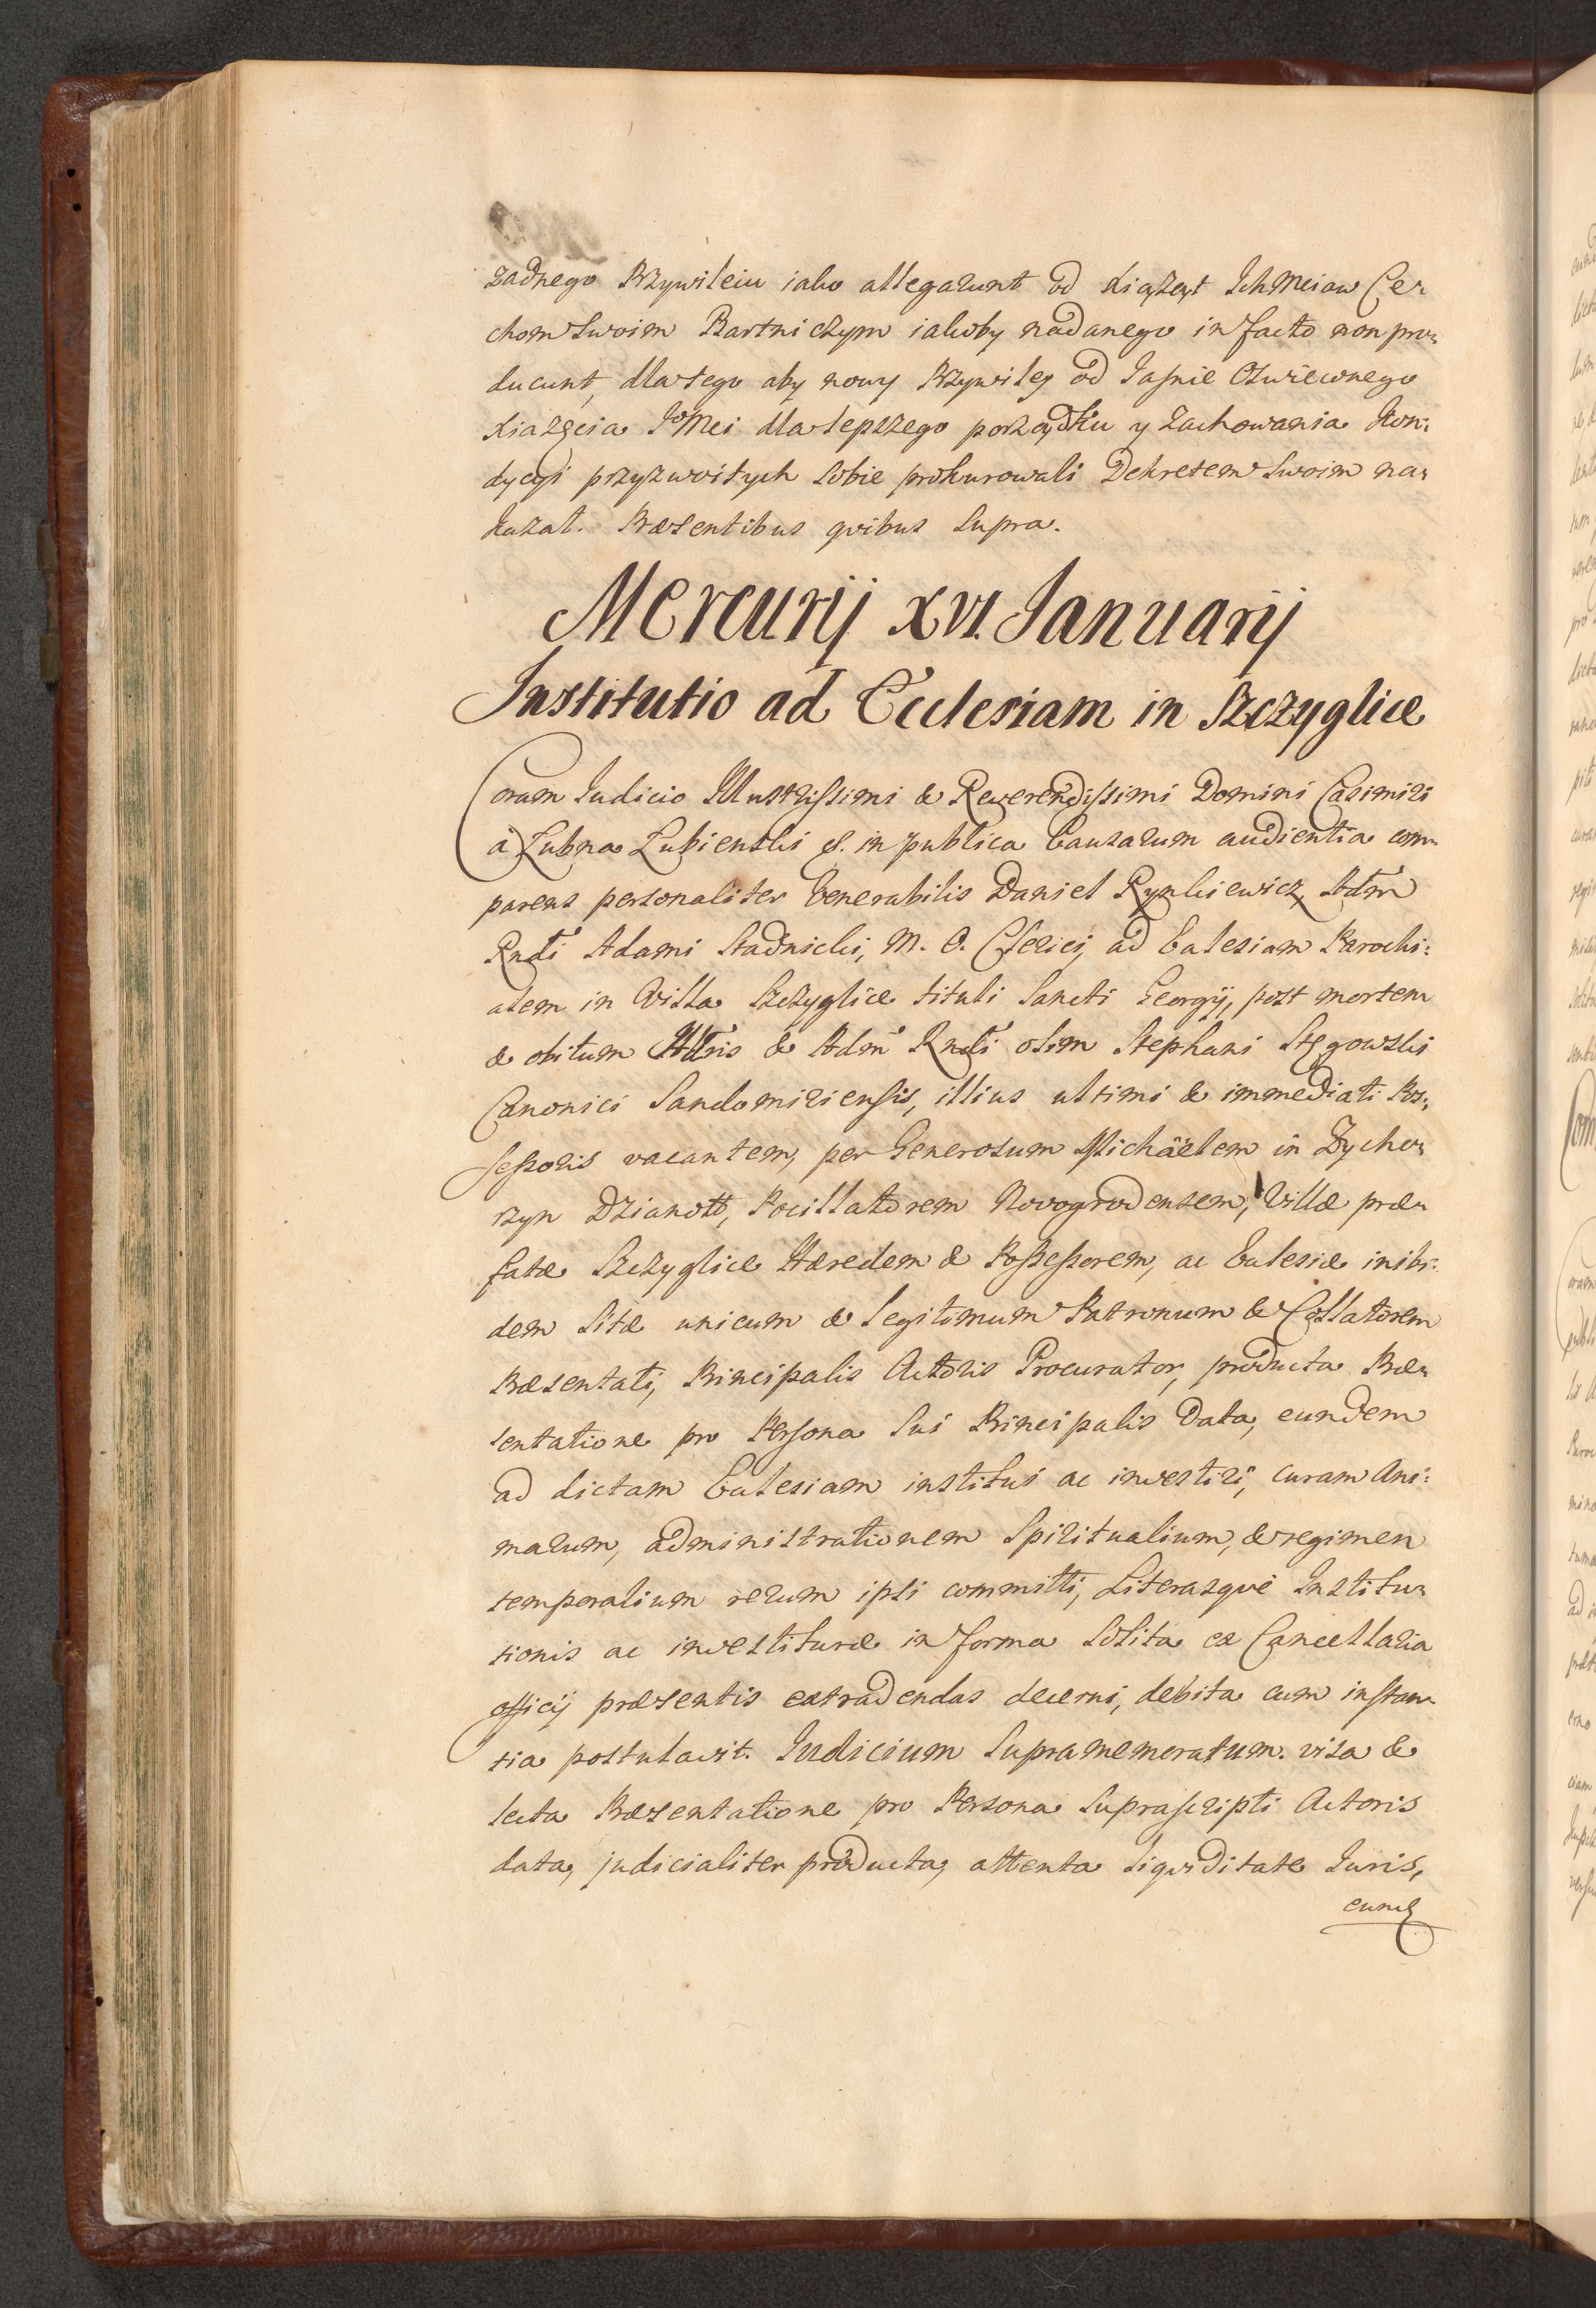 zadnego Przywileiu iako allegarunt od Kiążąt IchMciow Cer
chom Swoim Bartniczym iakoby nadanego in facto non pro-
ducunt, dla tego aby nowy Przywiley od Jaśnie Oświeconego
Xiążęcia JoMci dla lepszego porządku y zachowania Kon-
dycyi przyzwoitych sobie prokurowali Dekretem Swoim na-
kazał. Præsentibus qvibus Supra.
Mercurij XVI. Januarij
Institutio ad Ecclesiam in Szczyglice
Coram Iudicio Illustrissimi & Reverendissimi Domini Casimiri
à Łubna Łubienski &. in publica Causarum audientia com-
parens personaliter Venerabilis Daniel Rynkiewicz, Adm
Rndi Adami Stadnicki, M. O. Clerici, ad Ecclesiam Parochi-
alem in Villa Szczyglice tituli Sancti Georgij, post mortem
& obitum Illris & Adm Rndi olim Stephani Stęgowski
Canonici Sandomiriensis, illius ultimi & immediati Pos-
sessoris vacantem, per Generosum Michäelem in Zycho-
rzyn Dzianott, Pocillatorem Novogrodensem, Villæ præ-
fatæ Szczyglice Hæredem & Possessorem, ac Ecclesiæ inibi-
dem sitæ unicum & legitimum Patronum & Collatorem
Præsentati, Principalis Actoris Procurator, producta Præ-
sentatione pro Persona Sui Principalis Data, eundem
ad dictam Ecclesiam institui ac investiri, curam Ani-
marum, administrationem Spiritualium, & regimen
temporalium rerum ipsi committi, Literasqve Institu-
tionis ac investituræ in forma solita ex Cancellaria
officij præsentis extradendas decerni, debita cum instan-
tia postulavit. Iudicium Supramemoratum. visa &
lecta Præsentatione pro Persona Suprascripti Actoris
data, judicialiter producta, attenta liqviditate Iuris,
eund